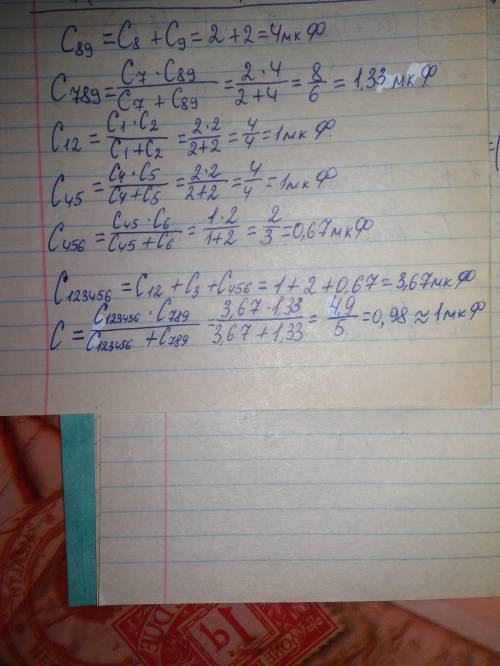 C₈₉ = C₈ + C₉ = 2 + 2 = 4 мк Ф
C₇₈₉ = (C₇ · C₈₉)/(C₇ + C₈₉) = (2 · 4)/(2 + 4) = 8/6 = 1,33 мк Ф
C₁₂ = (C₁ · C₂)/(C₁ + C₂) = (2 · 2)/(2 + 2) = 4/4 = 1 мк Ф
C₄₅ = (C₄ · C₅)/(C₄ + C₅) = (2 · 2)/(2 + 2) = 4/4 = 1 мк Ф
C₄₅₆ = (C₄₅ · C₆)/(C₄₅ + C₆) = (1 · 2)/(1 + 2) = 2/3 = 0,67 мк Ф
C₁₂₃₄₅₆ = C₁₂ + C₃ + C₄₅₆ = 1 + 2 + 0,67 = 3,67 мк Ф
C = (C₁₂₃₄₅₆ · C₇₈₉)/(C₁₂₃₄₅₆ + C₇₈₉) = (3,67 · 1,33)/(3,67 + 1,33) = 4,9/5 = 0,98 ≈ 1 мк Ф